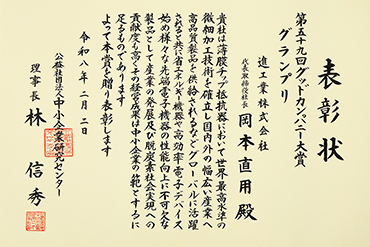 表彰状
第五十九回グッドカンパニー大賞
グランプリ
進工業株式会社
代表取締役社長 岡本直用殿
貴社は薄膜チップ抵抗器において世界最高水準の
微細加工技術を確立し国内外の幅広い産業へ
高品質製品を供給されるなどグローバルに活躍
されると共に省エネルギー機器や高効率電子デバイス
始め様々な先端電子機器の性能向上に不可欠な
製品として産業の発展及び脱炭素社会実現への
貢献度も高くその経営成果は中小企業の範とするに
足るものであります
よって本賞を贈り表彰します
令和八年二月二日
公益社団法人中小企業研究センター
理事長 林信秀